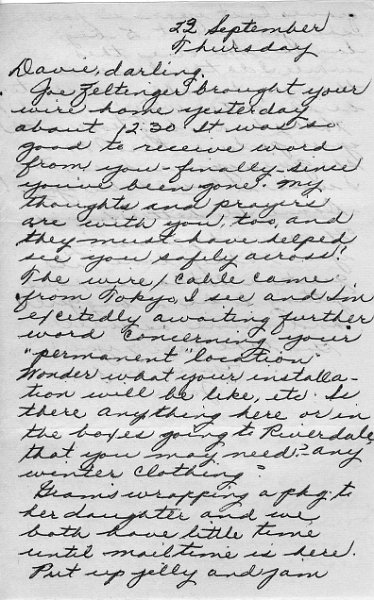 22 September
Thursday
Davie, darling,
Joe Zeltinger brought your
wire home yesterday
about 12:30. It was so
good to receive word
from you - finally - since
you've been gone. My
thoughts and prayers
are with you, too, and
they must have helped
see you safely across!
The wire/cable came
from Tokyo, I see, and I'm
excitedly awaiting further
word concerning your
"permanent" location.
Wonder what your installa-
tion will be like, etc. Is
there anything here or in
the boxes going to Riverdale,
that you may need? any
winter clothing?
Gram's wrapping a pkg. to
her daughter and we
both have little time
until mailtime is here.
Put up jelly and jam